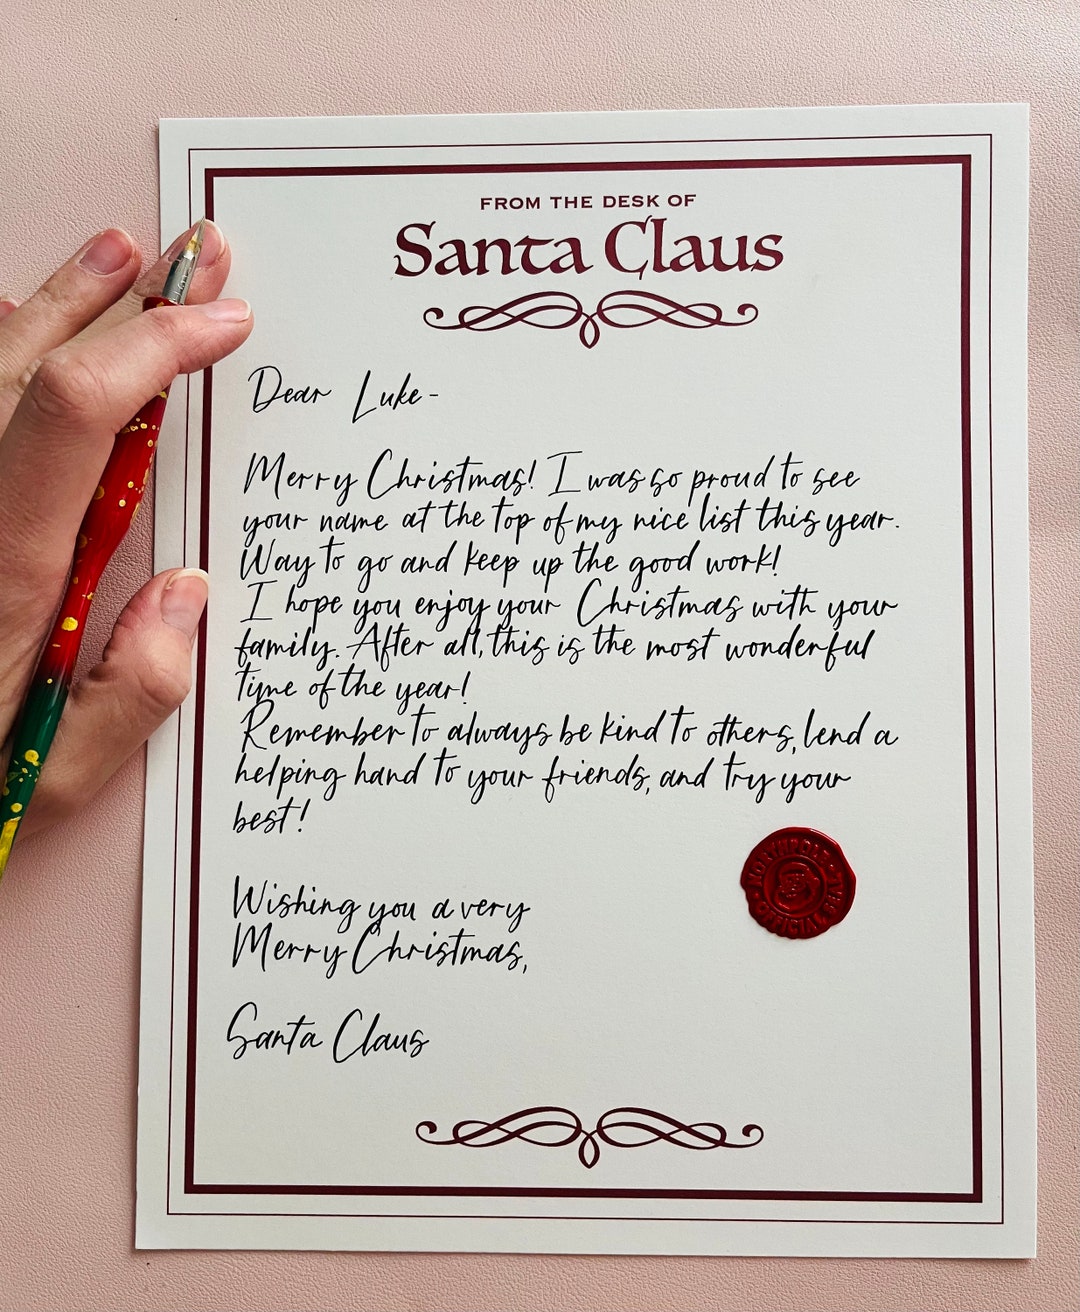 FROM THE DESK OF
Santa Claus
Dear Luke-
Merry Christmas! I was so proud to see
your name at the top of my nice list this year.
Way to go and keep up the good work!
I hope you enjoy your Christmas with your
family. After all, this is the most wonderful
time of the year!
Remember to always be kind to others, lend a
helping hand to your friends, and try your
best!
NORTH POLE
OFFICIAL SEAL
Wishing you a very
Merry Christmas,
Santa Claus